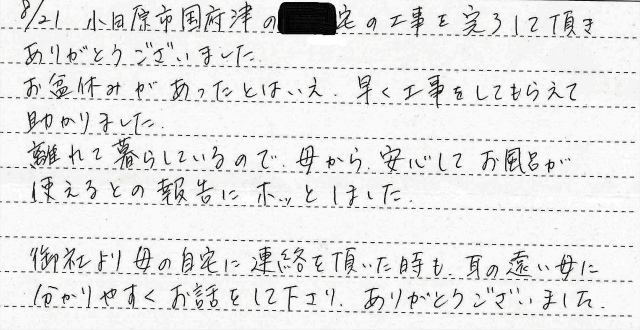 8/21 小田原市国府津の 宅の工事を完了して頂き
ありがとうございました
お盆休みがあったとはいえ、早く工事をしてもらえて
助かりました.
離れて暮らしているので、母から、安心してお風呂が
使えるとの報告にホッとしました.
御社より母の自宅に連絡を頂いた時も、耳の遠い母に
分かりやすくお話をして下さり、ありがとうございました.